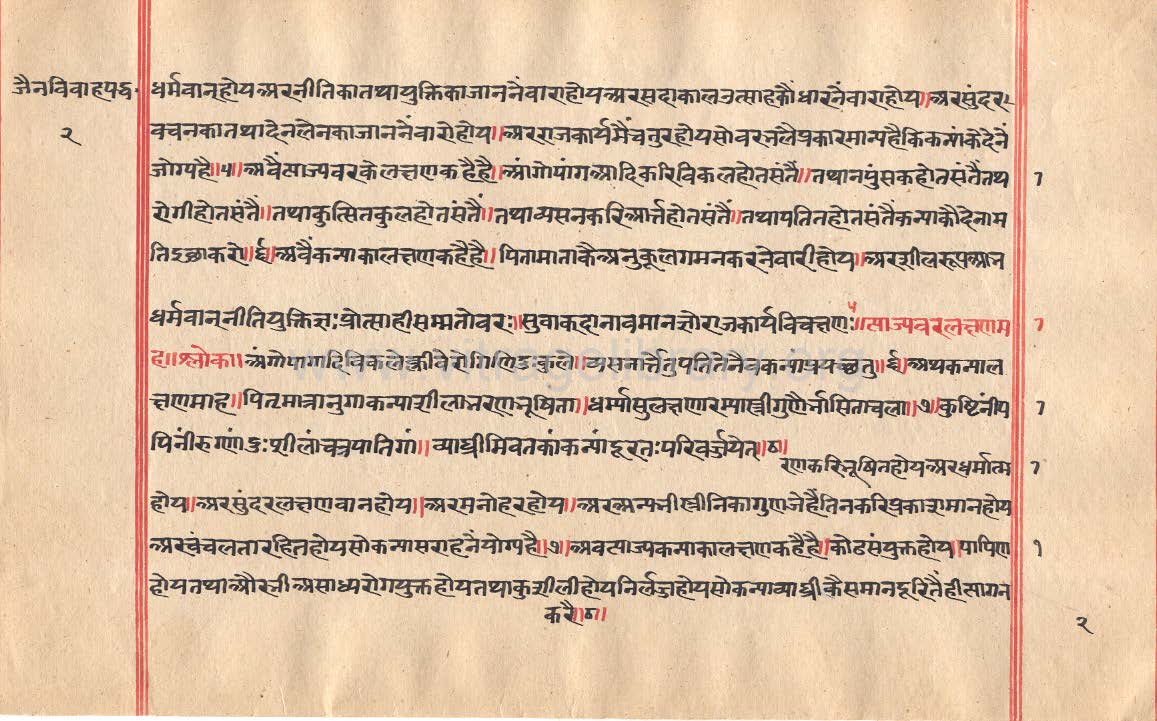 जैनविवाहपद्ध॰ धर्मवान्होयअरनीतिकातथायुक्तिकाजाननैंवाराहोयअरसदाकालउत्साहकौंधारनैंवाराहोय॥अरसुंदर
२ वचनकातथादेनलेनकाजाननैंवारोहोय॥अरराजकार्यमैंचतुरहोयसोवरभलैप्रकारमान्यहैकिकन्यांकेदेनें
जोग्यहै॥५॥अवैंत्याज्यवरकेलक्षणकहैहै॥आंगोपांगआदिकरिविकलहोतसंतैं॥तथानपुंसकहोतसंतैंतथ १
रोगीहोतसंतैं॥तथाकुत्सितकुलहोतसंतैं॥तथाव्यसनकरिआर्त्तहोतसंतैं॥तथापतितहोतसंतैंकन्याकौंदेनाम
तिइछाकरो॥६॥अवैंकन्याकालक्षणकहैहै॥पितामाताकैअनुकूलगमनकरनेवारीहोय॥अरशीलरूपआभ
५
धर्मवान्नीतियुक्तिज्ञःप्रोत्साहीसम्मतोवरः॥सुवाकदानावमानज्ञोराजकार्यविचक्षणः॥त्याज्यवरलक्षणम १
ह॥श्लोक॥अंगोपांगादिविकलेक्लीवेरोगिणिदुःकुले॥व्यसनार्त्तेतुपतितेनैवकन्यांप्रयच्छतु॥६॥अथकन्याल
क्षणमाह॥पितृमात्रानुगाकन्याशीलाभरणभूषिता॥धर्म्यासुलक्षणारम्यास्त्रीगुणैर्भासिताचला॥७॥कुष्टिनींप १
पिनींरुग्णांदुःशीलांचत्रयातिगां॥व्याघ्रीमिवतकांकन्यांदूरतःपरिवर्ज्जयेत्॥८॥
रणकरिभूषितहोयअरधर्मात्म १
होय॥अरसुंदरलक्षणवानहोय॥अरमनोहरहोय॥अरअन्यभीस्त्रीनिकागुणजेहैंतिनकरिप्रकाशमानहोय
अरचंचलतारहितहोयसोकन्यासराहनैंयोग्यहै॥७॥अवत्याज्यकन्याकालक्षणकहैहै॥कोढसंयुक्तहोय॥पापिण १
होयतथाऔरभीअसाध्यरोगयुक्तहोयतथाकुशीलीहोयनिर्लज्जहोयसोकन्याव्याघ्रीकैसमानदूरितैंहीत्यागन
करै॥८॥
२
www.vitragelibrary.org